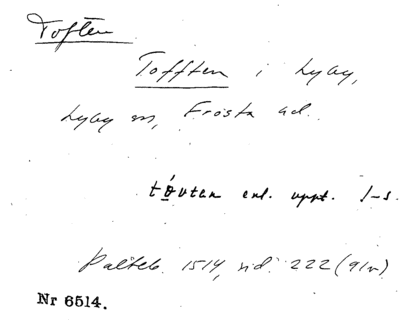 Toften
Tofften i Lyby,
Lyby sn, Frosta hd.
enl. uppt. 1-s.
Palteb. 1514, sid. 222 (91v)
Nr 6514.